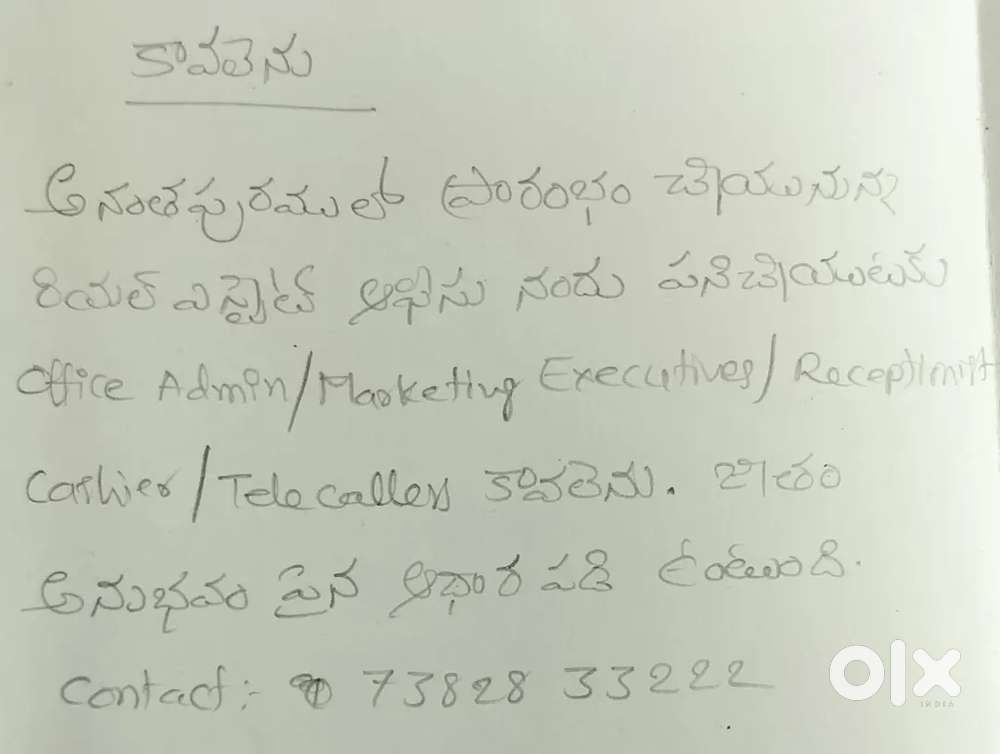 కావలెను
అనంతపురములో ప్రారంభం చేయునున్న
రియల్ ఎస్టేట్ ఆఫీసు నందు పనిచేయుటకు
Office Admin/Marketing Executives/Receptionist
Cashier/Telecallers కావలెను. జీతం
అనుభవం పైన ఆధార పడి ఉంటుంది.
Contact:- 73828 33222
olx
INDIA